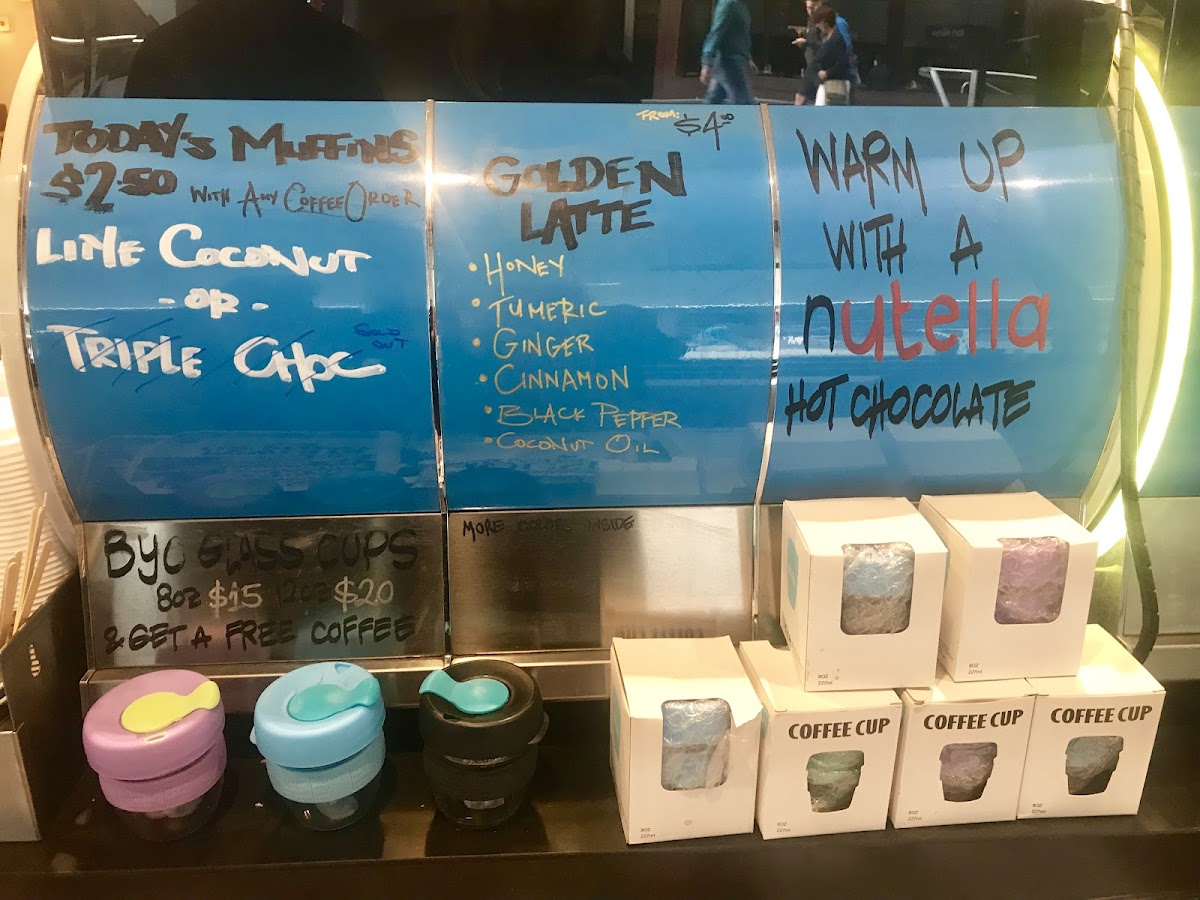 TODAY'S MUFFINS
$2.50 WITH ANY COFFEE ORDER
LIME COCONUT
- OR -
TRIPLE CHOC
SOLD OUT
FROM: $4.00
GOLDEN
LATTE
• HONEY
• TUMERIC
• GINGER
• CINNAMON
• BLACK PEPPER
• COCONUT OIL
WARM UP
WITH A
nutella
HOT CHOCOLATE
BYO GLASS CUPS
8OZ $15 12OZ $20
& GET A FREE COFFEE
MORE COLORS INSIDE
8OZ
227ml
8OZ
227ml
8OZ
227ml
COFFEE CUP
8OZ
227ml
COFFEE CUP
8OZ
227ml
COFFEE CUP
8OZ
227ml